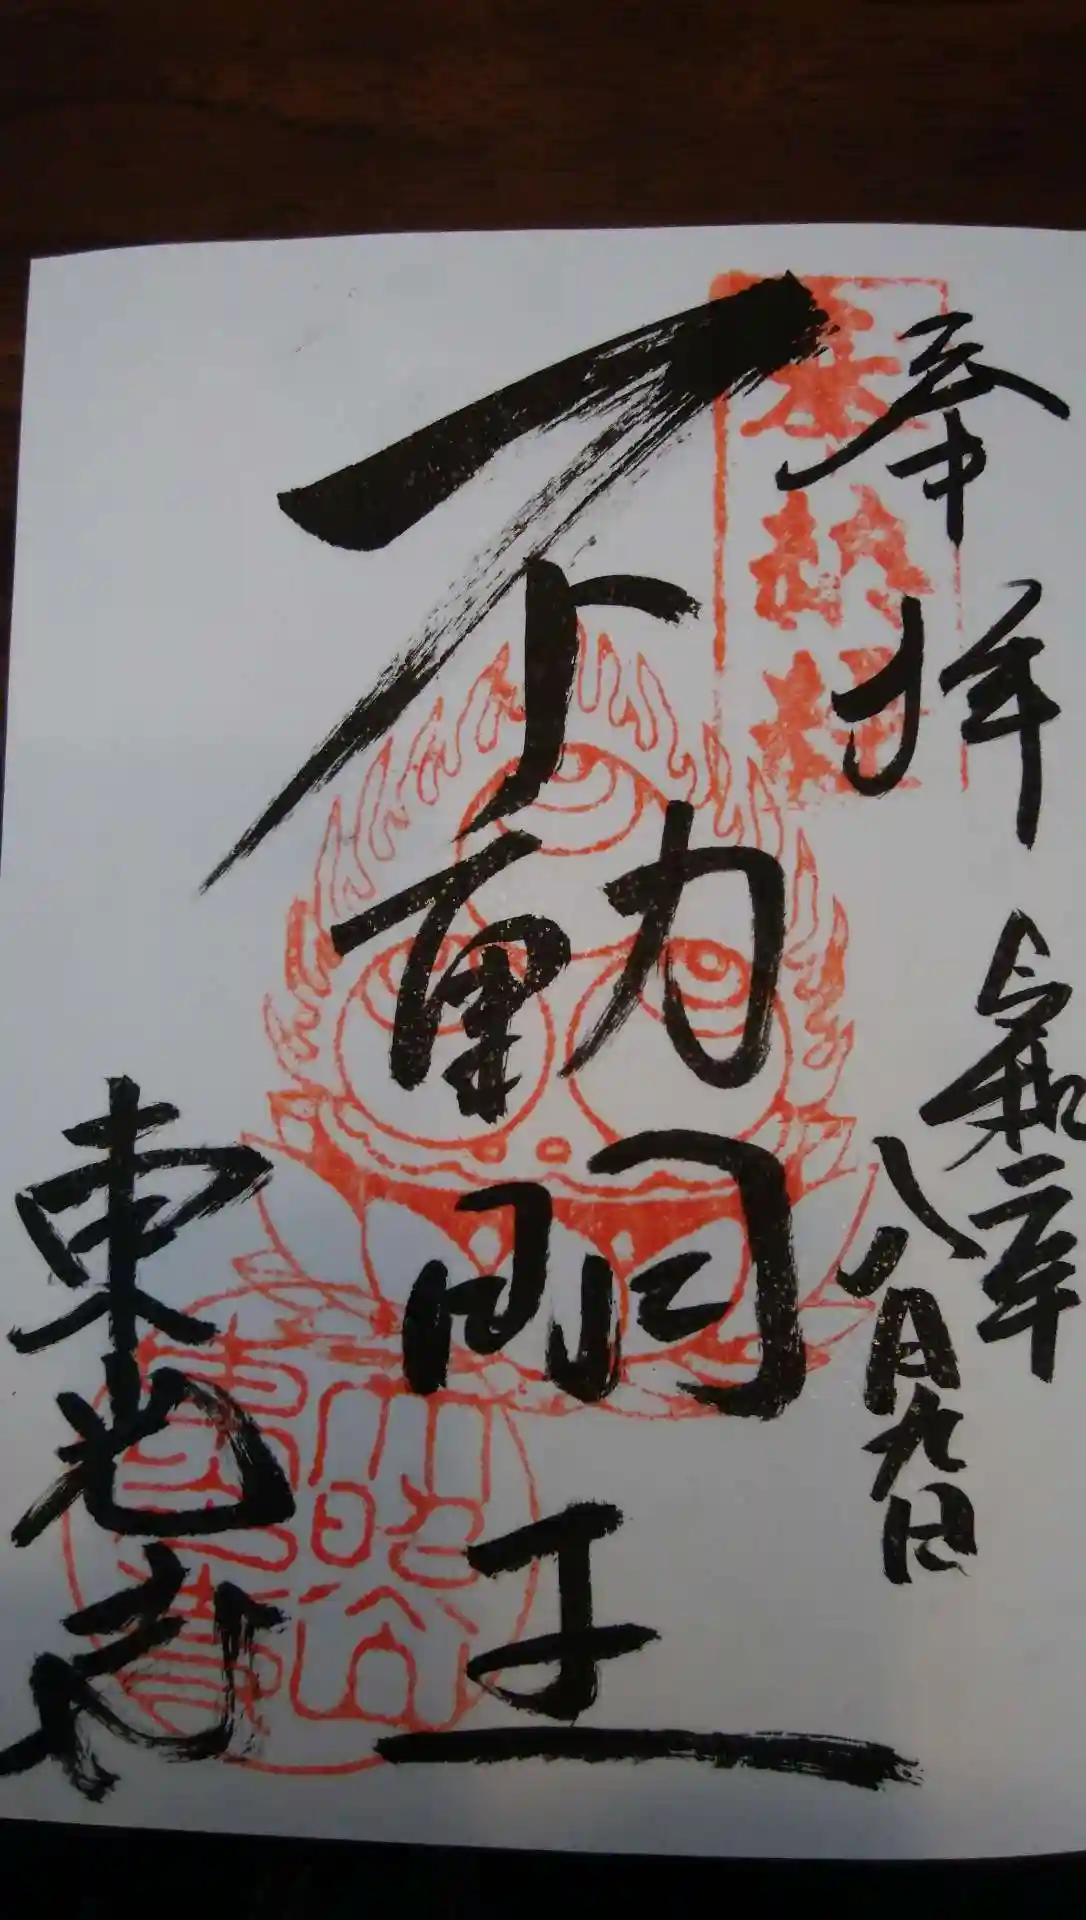 奉拝
令和二年
八月九日
奉納経
不動明王
東光寺